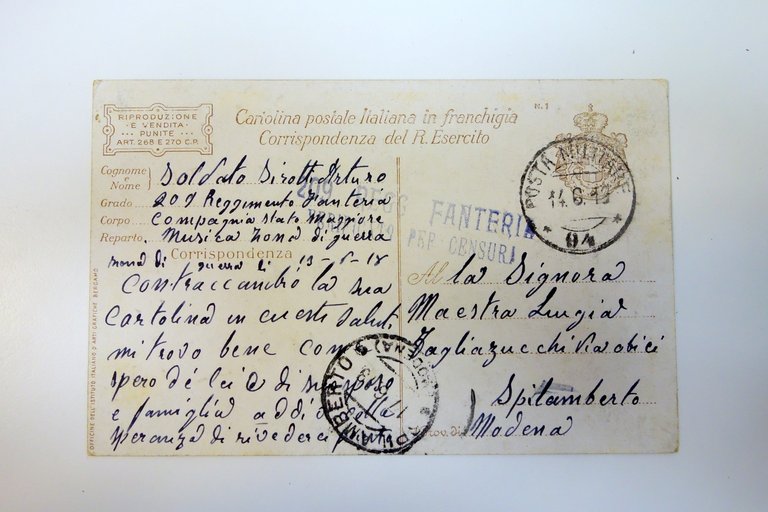 RIPRODUZIONE
E VENDITA
PUNITE
ART. 268 E 270 C.P.
Cartolina postale Italiana in franchigia
Corrispondenza del R. Esercito
N. 1
Cognome e Nome Soldato Sirotti Arturo
Grado 209 Reggimento Fanteria
Corpo Compagnia Stato Maggiore
Reparto Musica Zona di guerra
209 REGG FANTERIA
PER CENSURA
POSTA MILITARE
94
Corrispondenza
zona di guerra li 13-6-18
Contraccambió la sua
Cartolina in questi saluti
mi trovo bene com
spero dé lei é di suo sposo
e famiglia addio
speranza di rivederci
Al la Signora
Maestra Luigia
Tagliazucchi Via obici
Spilamberto
Prov. di Modena
SPILAMBERTO (MODENA)
OFFICINE DELL'ISTITUTO ITALIANO D'ARTI GRAFICHE BERGAMO